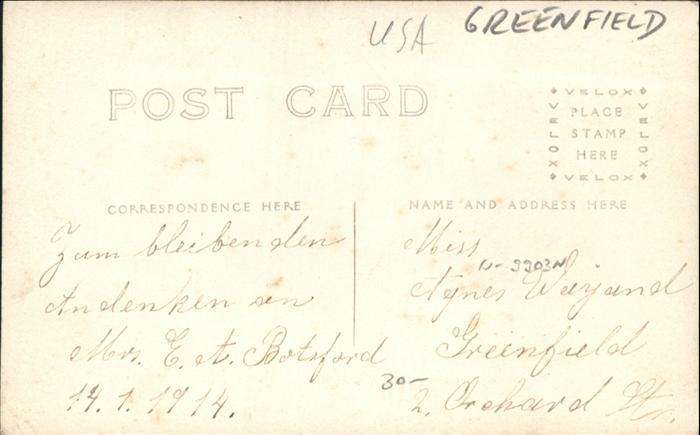 USA GREENFIELD
POST CARD
VELOX
VELOX
VELOX
PLACE
STAMP
HERE
VELOX
CORRESPONDENCE HERE
NAME AND ADDRESS HERE
Zum bleibenden
Andenken an
Mrs. E. A. Botsford
14.1.1914.
Miss
Agnes Weijand
Greenfield
30-
2. Orchard Str.